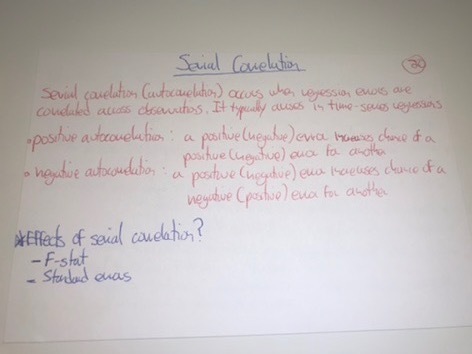 Serial Correlation
Serial correlation (autocorrelation) occurs when regression errors are
correlated across observations. It typically arises in time-series regressions
• positive autocorrelation : a positive (negative) error increases chance of a
positive (negative) error for another
• negative autocorrelation : a positive (negative) error increases chance of a
negative (positive) error for another
*Effects of serial correlation?
- F-stat
- Standard errors